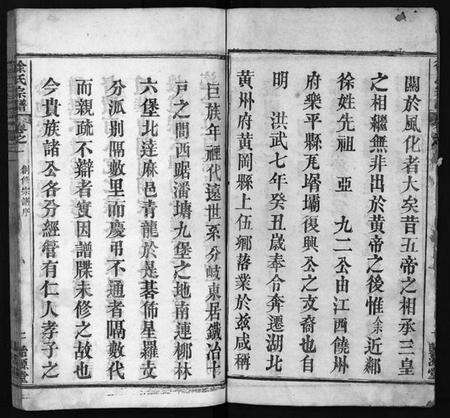 關於風化者大矣昔五帝之相承三皇
之相繼無非出於黃帝之後惟余近鄰
徐姓先祖 亞 九二公由江西饒州
府樂平縣瓦塔壩復興公之支裔也自
明 洪武七年癸丑歲奉令奔遷湖北
黃州府黃岡縣上伍鄉落業於茲咸稱
巨族年裡代遠世系分岐東居鐵冶十
戸之間西踞潘塘九堡之地南連柳林
六堡北達麻邑青龍於是碁佈星羅支
分派別隔數里而慶弔不通者隔數代
而親疏不辯者實因譜牒未修之故也
今貴族諸公各分經營有仁人孝子之
徐氏宗譜
卷之一
創修宗譜序
二